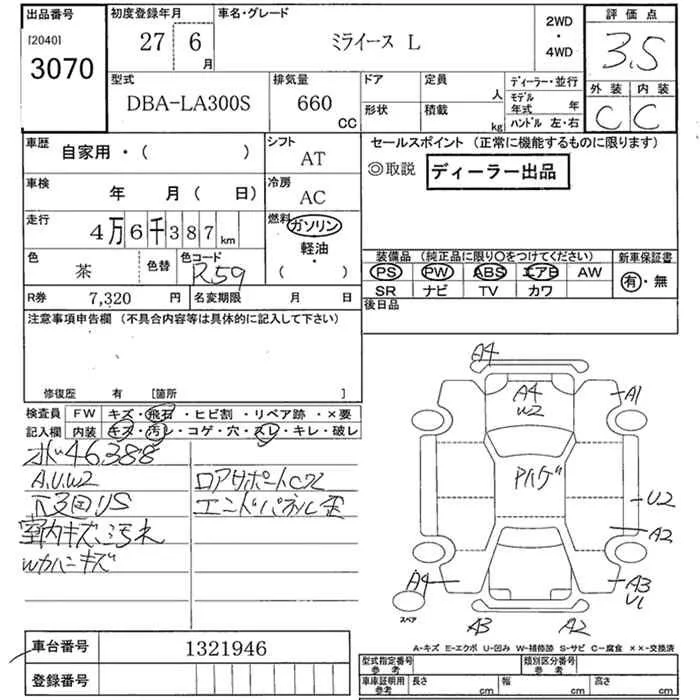 出品番号 初度登録年月 車名・グレード 2WD・4WD 評価点
[2040] 3070 27 6月 ミライース L 3.5
型式 排気量 ドア 定員 人 ディーラー・並行 外装 内装
DBA-LA300S 660 CC 形状 積載 kg モデル年式 年 ハンドル 左・右 C C
車歴 自家用・( ) シフト AT セールスポイント (正常に機能するものに限ります)
◎取説 ディーラー出品
車検 年 月( 日) 冷房 AC
走行 4万6千387km 燃料 ガソリン 軽油・( )
色 茶 色替 色コード R59
装備品 (純正品に限り○をつけてください) 新車保証書
PS PW ABS エアB AW 有・無
SR ナビ TV カワ
R券 7,320円 名変期限 月 日 後日品
注意事項申告欄 (不具合内容等は具体的に記入して下さい)
修復歴 有 [箇所 ]
検査員記入欄 FW キズ・飛石・ヒビ割・リペア跡・×要
内装 キズ・汚レ・コゲ・穴・スレ・キレ・破レ
46388
A.U.W2 ロアサポートC欠
下廻りS エンドパネル歪
室内キズ汚れ
Wカバーキズ
A4
A4 W2
A1
Pハゲ
U2
A2
A4
A3 U1
スペア
A3 A2
A-キズ E-エクボ U-凹み W-補修跡 S-サビ C-腐食 ××-交換済
車台番号 1321946
登録番号
型式指定番号 参考 類別区分番号 参考
車庫証明用 参考 長さ cm 幅 cm 高さ cm